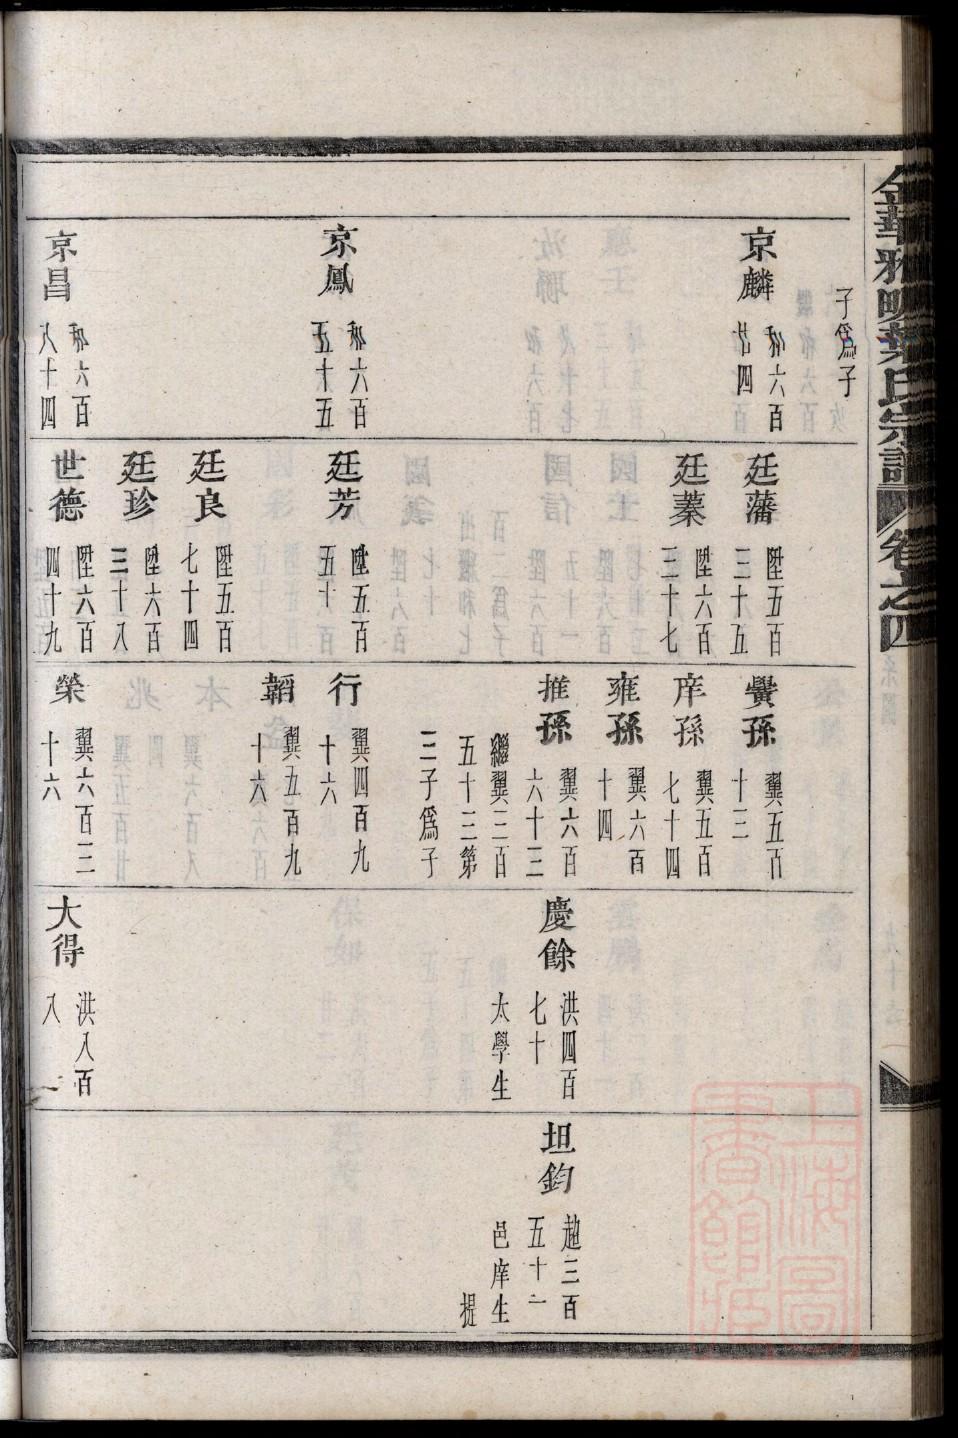 金華雅畈葉氏宗譜 卷之四
子為子
京麟 和六百廿四
京鳳 和六百五十五
京昌 和六百八十四
廷藩 陞五百三十五
廷蓁 陞六百三十七
廷芳 陞五百五十
廷良 陞五百七十四
廷珍 陞六百三十八
世德 陞六百四十九
黌孫 翼五百十三
庠孫 翼五百七十四
雍孫 翼六百十四
推孫 翼六百六十三
繼翼三百
五十三第
三子為子
行 翼四百九十六
韜 翼五百九十六
榮 翼六百三十六
慶餘 洪四百七十
太學生
大得 洪八百八
坦鈞 趙三百五十一
邑庠生
提
上海圖書館藏